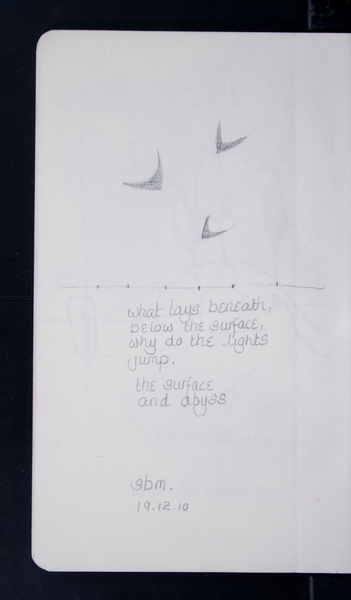 what lays beneath,
below the surface,
why do the lights
jump.
the surface
and abyss
sbm.
19.12.10